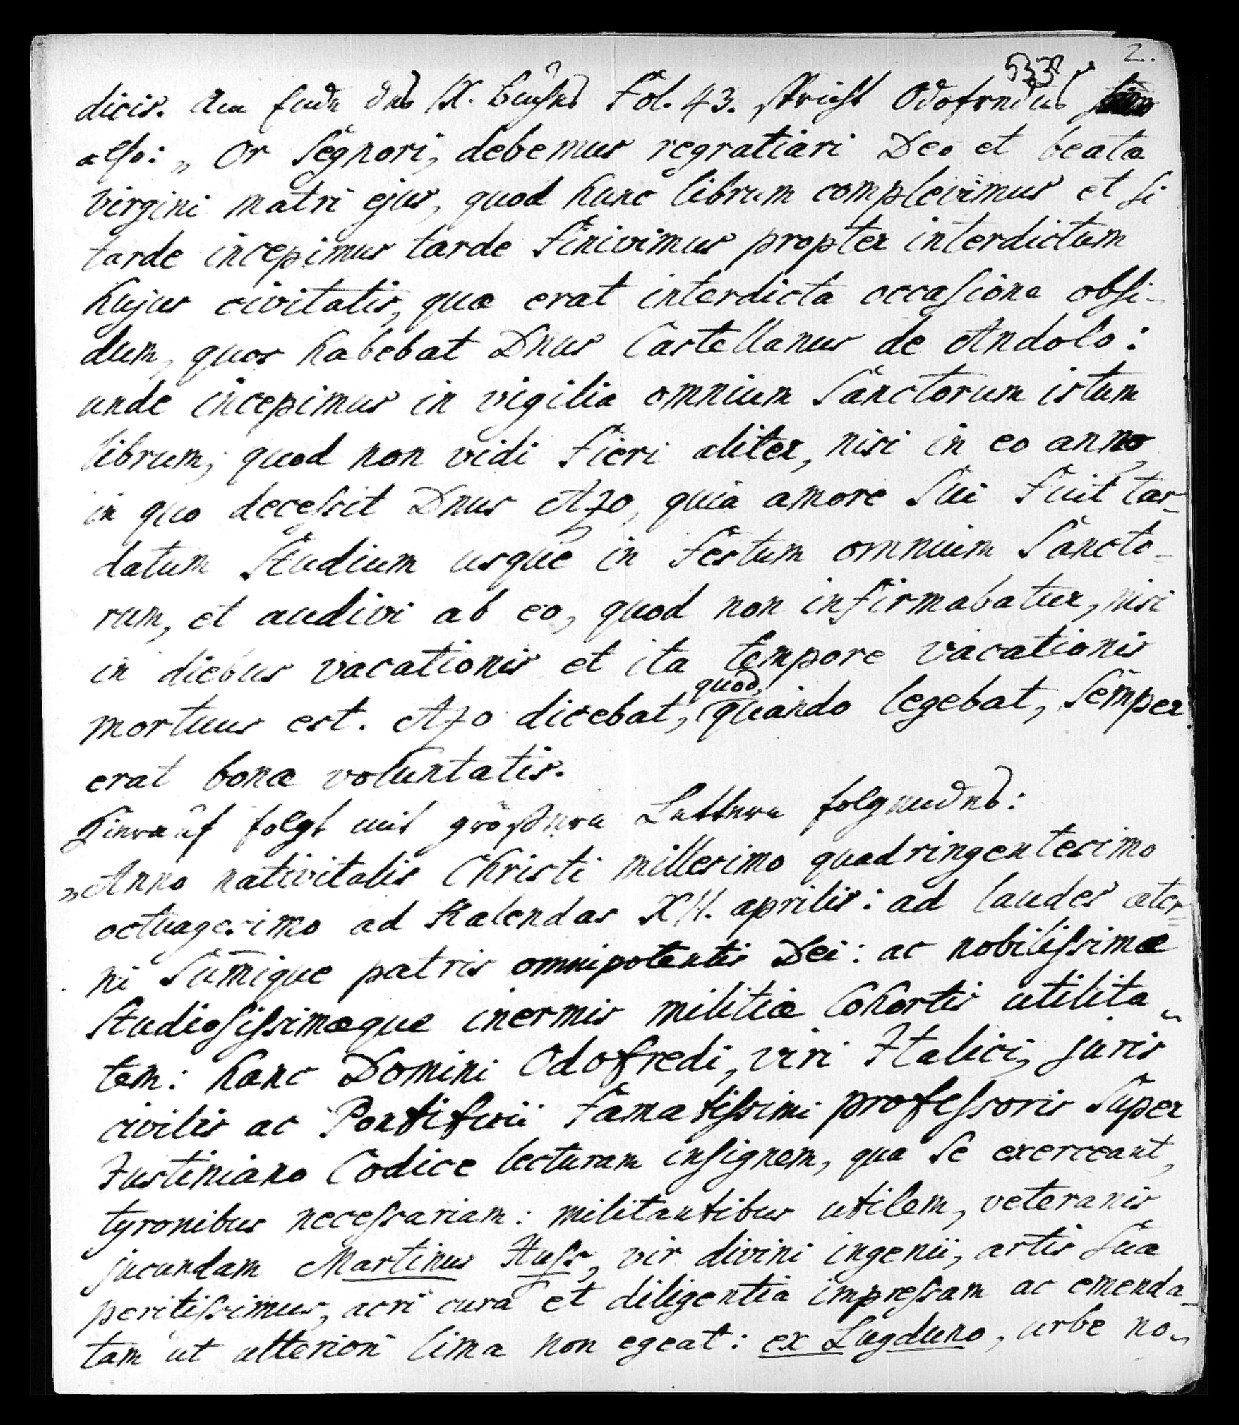 2.
533
dicis. Am Ende des IX. Buches Fol. 43. spricht Odofredus
also: „ Or Segnori, debemus regratiari Deo et beata
virgini matri ejus, quod hunc librum complevimus et si
tarde incepimus tarde finivimus propter interdictum
hujus civitatis, quæ erat interdicta occasione obsi-
dum, quos habebat Dnus Castellanus de Andolo:
unde incepimus in vigilia omnium Sanctorum istum
librum; quod non vidi fieri aliter, nisi in eo anno,
in quo decessit Dnus Azo, quia amore sui fuit tar-
datum Studium usque in festum omnium Sancto-
rum, et audivi ab eo, quod non infirmabatur, nisi
in diebus vacationis et ita tempore vacationis
mortuus est. Azo dicebat, quod quando legebat, semper
erat bonæ voluntatis.
Hierauf folgt mit größern Lettern folgendes:
„Anno nativitatis Christi millesimo quadringentesimo
octuagesimo ad Kalendas XII. aprilis: ad laudes æter-
ni Sum̄ique patris omnipotentis Dei: ac nobilissimæ
Studiosissimæque inermis militiæ Cohortis utilita-
tem: hanc Domini Odofredi, viri Italici, juris
civilis ac Pontificii famatissimi professoris super
Justiniano Codice lecturam insignem, qua se exerceant,
tyronibus necessariam: militantibus utilem, veteranis
jucundam Martinus Huss, vir divini ingenii, artis suæ
peritissimus, acri cura et diligentia impressam ac emenda-
tam ut ulteriori lima non egeat: ex Lugduno, urbe no-